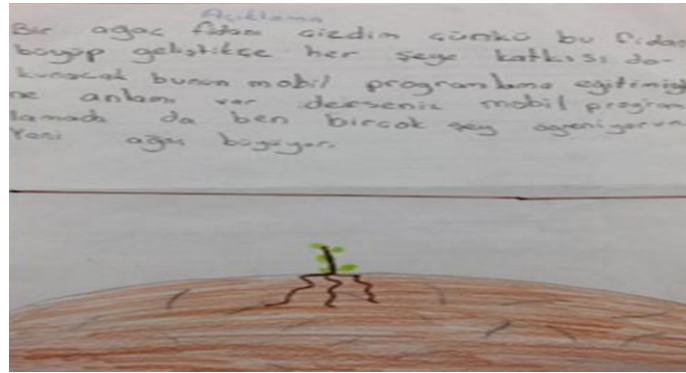 Açıklama
Bir ağaç fidanı çizdim çünkü bu fidan
büyüp geliştikçe her şeye katkısı do-
kunacak bunun mobil programlama eğitimiyle
ne anlamı var derseniz mobil program
lamada da ben birçok şey ögreniyorum
Yani ağaç büyüyor.